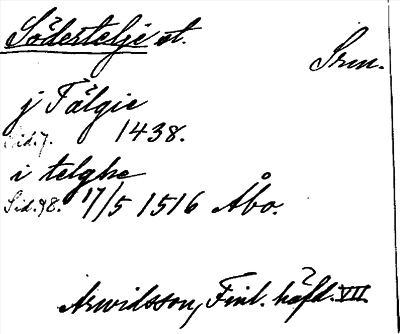 Södertelje st.
Srm.
j Tälgie
Sid. 7. 1438.
i telghe
Sid. 98. 17/5 1516 Åbo.
Arwidsson, Finl. häfd. VII